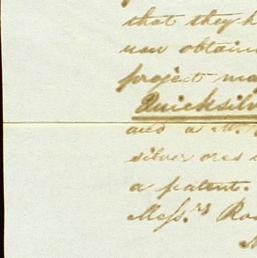 that they h
now obtain
project ma
Quicksilv
and a
silver ores
a patent.
Mess.rs Ro